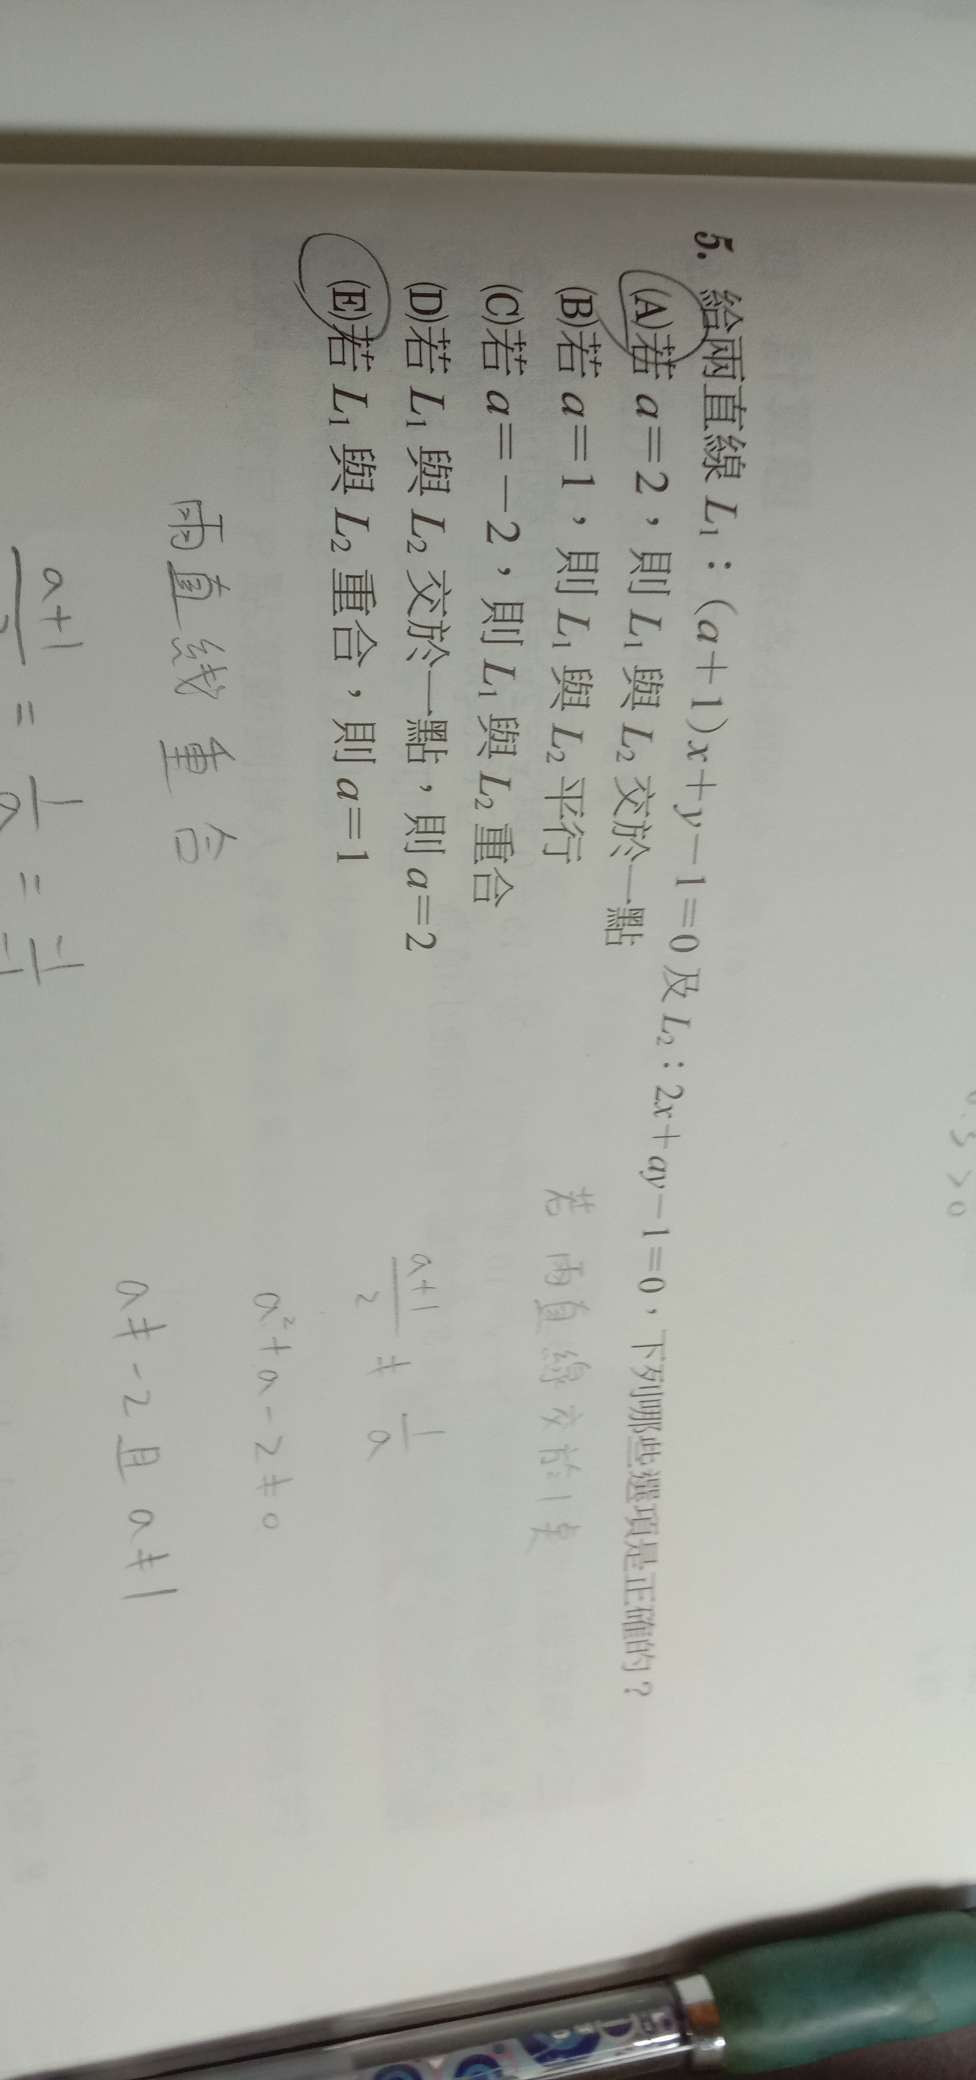 5. 給兩直線 L₁：(a+1)x+y−1=0 及 L₂：2x+ay−1=0，下列哪些選項是正確的？
(A)若 a=2，則 L₁ 與 L₂ 交於一點
(B)若 a=1，則 L₁ 與 L₂ 平行
(C)若 a=−2，則 L₁ 與 L₂ 重合
(D)若 L₁ 與 L₂ 交於一點，則 a=2
(E)若 L₁ 與 L₂ 重合，則 a=1
若兩直線交於1點
a+1/2 ≠ 1/a
a²+a−2≠0
a≠−2且a≠1
兩直线重合
a+1/2 = 1/a = −1/−1